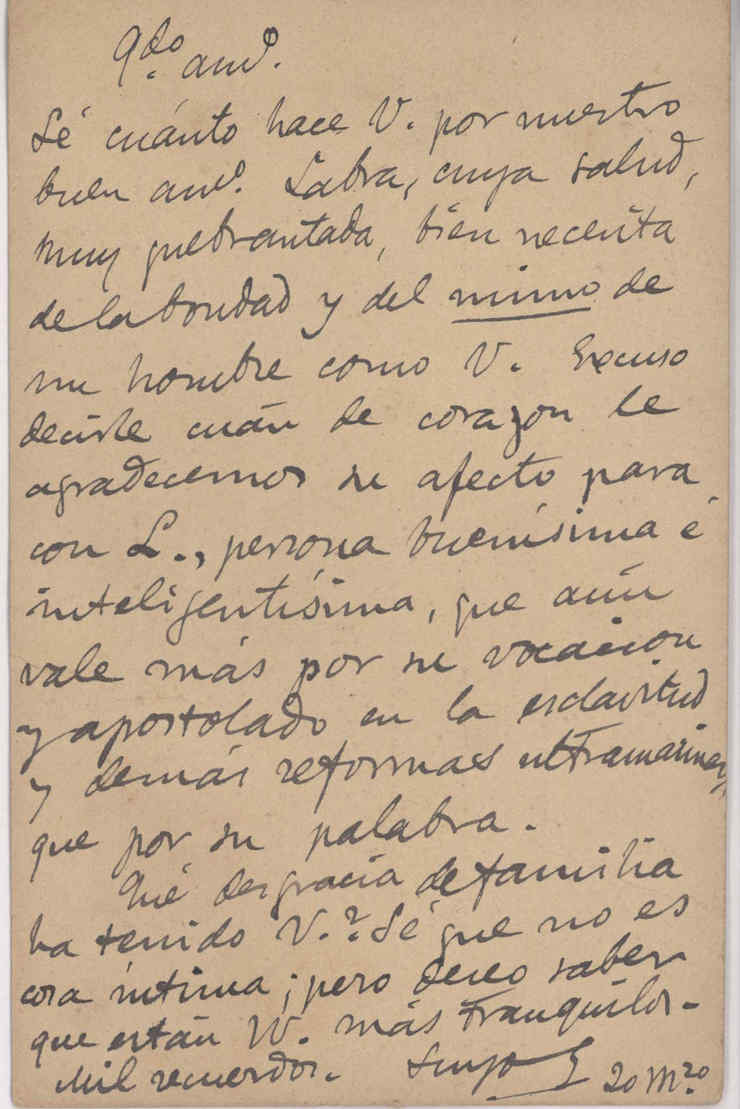 Qdo. amº.
Sé cuánto hace V. por nuestro
buen amº. Labra, cuya salud,
muy quebrantada, bien necesita
de la bondad y del mimo de
un hombre como V. Excuso
decirle cuán de corazon le
agradecemos su afecto para
con L., persona buenísima é
inteligentísima, que aún
vale más por su vocacion
y apostolado en la esclavitud
y demás reformas ultramarinas,
que por su palabra.
Qué desgracia de familia
ha tenido V.? Sé que no es
cosa íntima; pero deseo saber
que están VV. más tranquilos.
Mil recuerdos. Suyo 20 Mzo